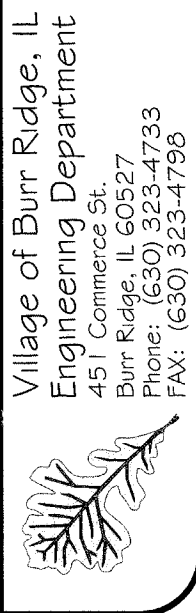 Village of Burr Ridge, IL
Engineering Department
451 Commerce St.
Burr Ridge, IL 60527
Phone: (630) 323-4733
FAX: (630) 323-4798